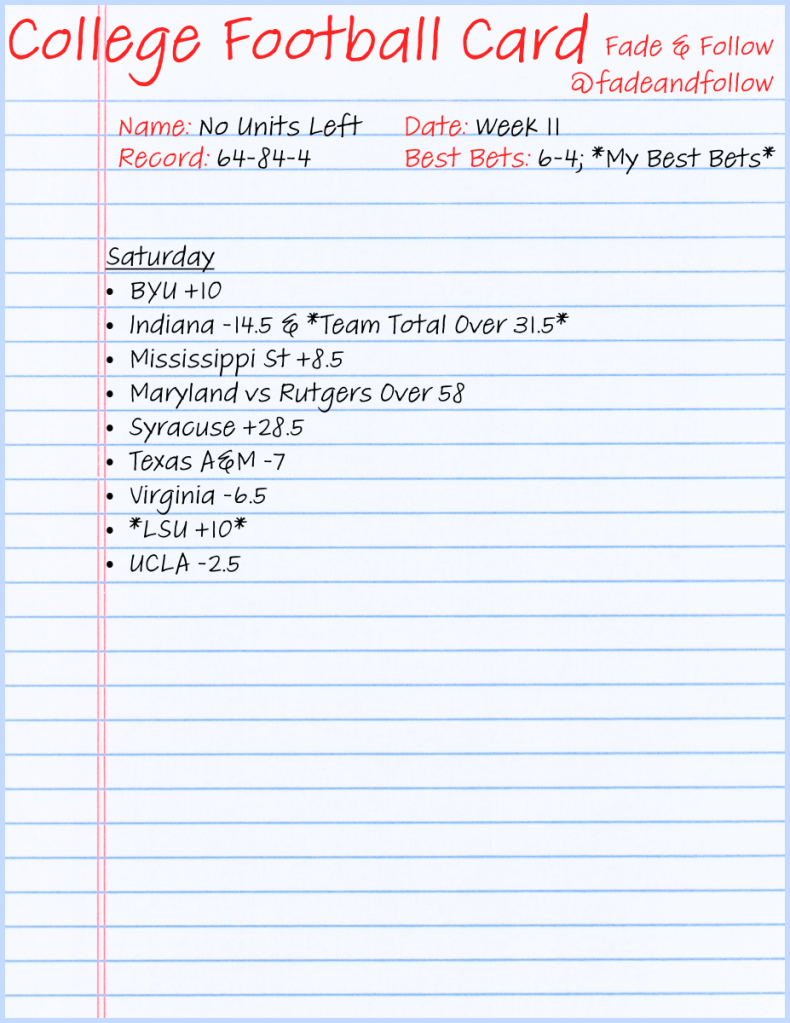 College Football Card Fade & Follow
@fadeandfollow
Name: No Units Left Date: Week 11
Record: 64-84-4 Best Bets: 6-4; *My Best Bets*
Saturday
• BYU +10
• Indiana -14.5 & *Team Total Over 31.5*
• Mississippi St +8.5
• Maryland vs Rutgers Over 58
• Syracuse +28.5
• Texas A&M -7
• Virginia -6.5
• *LSU +10*
• UCLA -2.5